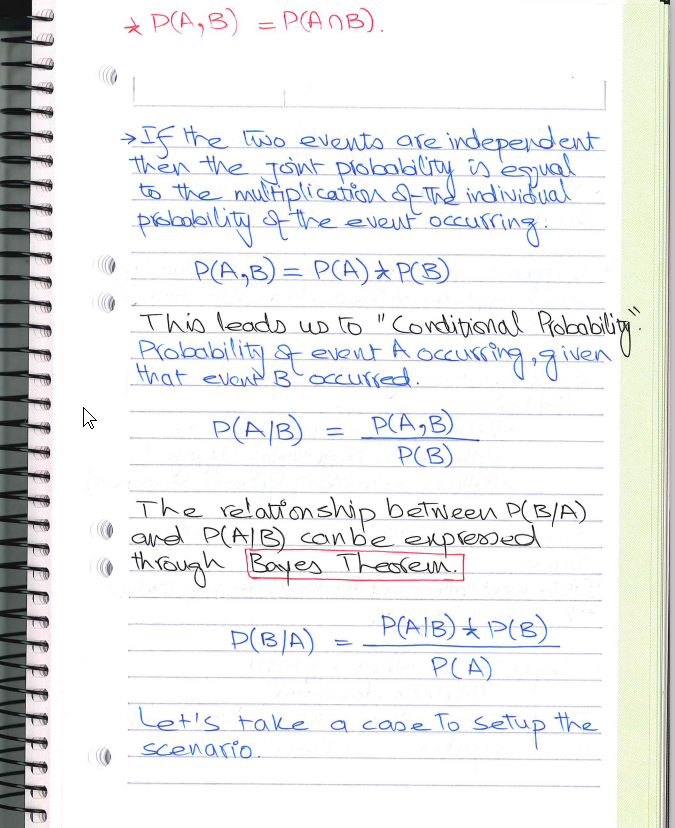 * P(A,B) = P(A∩B).
→ If the two events are independent
then the joint probability is equal
to the multiplication of the individual
probability of the event occurring.
P(A,B) = P(A) * P(B)
This leads us to "Conditional Probability".
Probability of event A occurring, given
that event B occurred.
P(A/B) = P(A,B)
P(B)
The relationship between P(B/A)
and P(A|B) can be expressed
through Bayes Theorem.
P(B/A) = P(A|B) * P(B)
P(A)
Let's take a case to setup the
scenario.